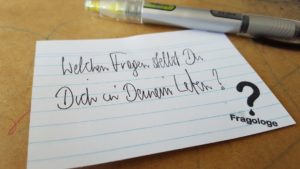 Welchen Fragen stellst Du
Dich in Deinem Leben?
?
Fragologe